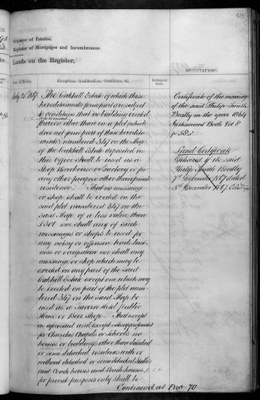 Tenure of Estates,
Register of Mortgages and Incumbrances
Lands on the Register.
The Catshill Estate of which these
hereditaments form part are subject
to conditions that no building erected
thereon other than on a plot which
does not form part of these heredita-
ments numbered 347 on the Map
of the Catshill Estate deposited in
this Office shall be used as a
Shop Warehouse or Factory or for
any other purpose other than a private
residence. That no messuage
or shop shall be erected on the
said plot numbered 347 on the
said Map of a less value than
nor shall any of such
messuages or shops be used for
any noisy or offensive trade busi-
ness or occupation nor shall any
messuage or shop which may be
erected on any part of the said
Estate except one which may
be erected on part of the plot num-
bered 347 on the said Map be
used as a Tavern Inn Public
House or Beer Shop. That except
as aforesaid and except messuages used
as Churches Chapels or Schools no
houses or buildings other than detached
or semi detached residences with or
without detached or semi detached stables
and Coach houses and outbuildings
for private purposes only shall be
Continued at Fol. 70
Certificate of the marriage
of the said Philip Smith
Beatty in the year
Instrument Book Vol
p 383
Land Certificate
Delivered to the said
Philip Smith Beatty
7th November 1867 dated
5th November 1867